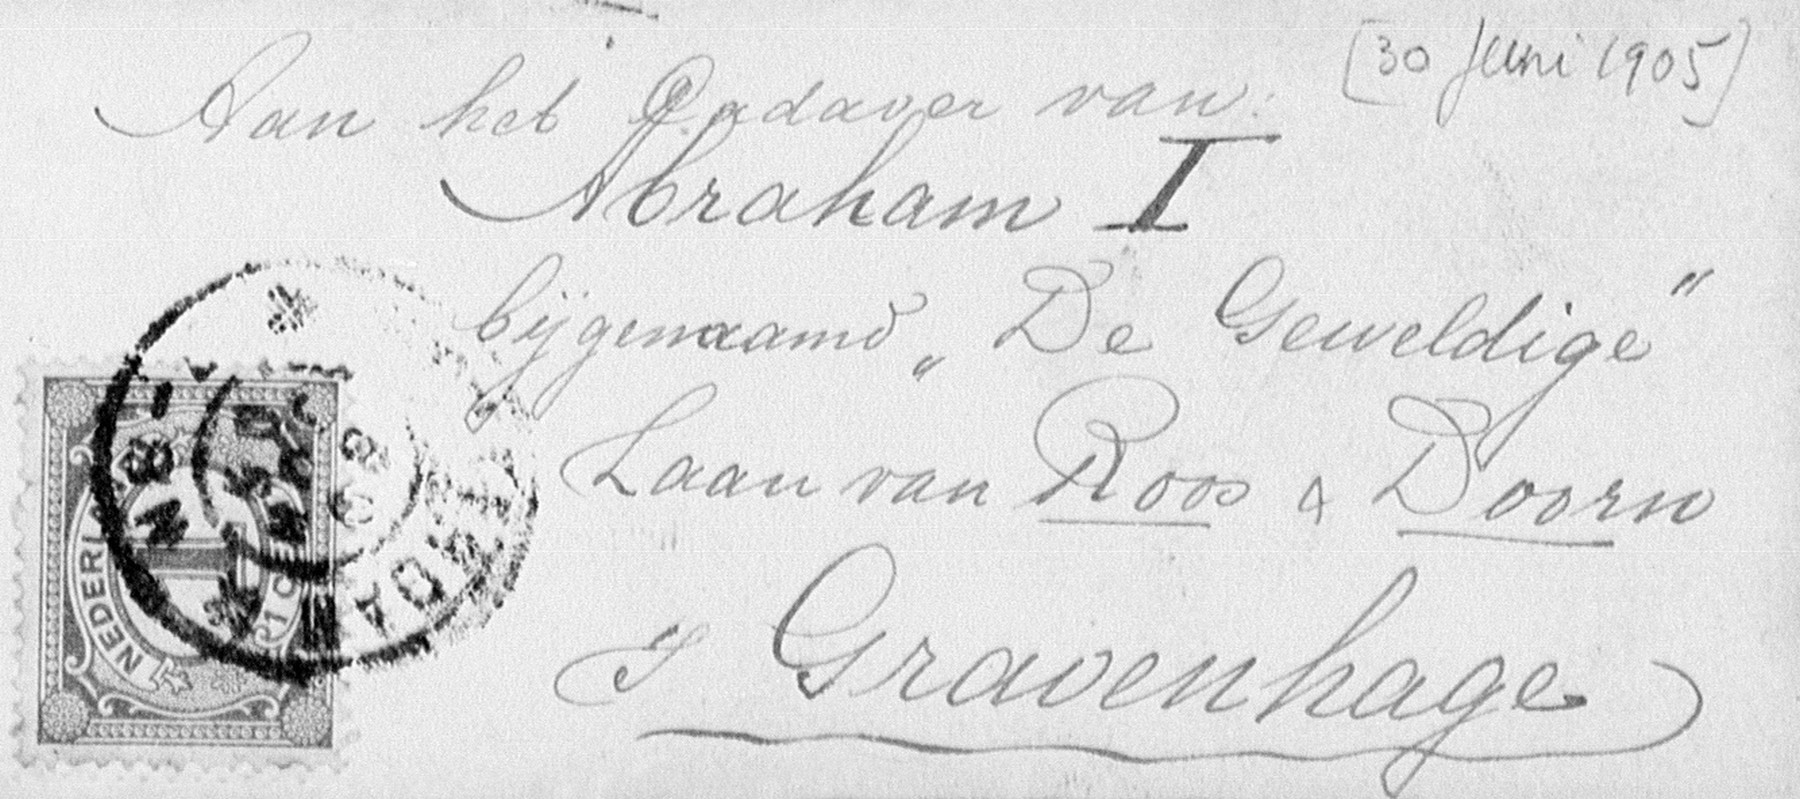 [30 Juni 1905]
Aan het Cadaver van:
Abraham I
bijgenaamd „De Geweldige"
Laan van Roos & Doorn
s Gravenhage
NEDERLA
1 CEN
1